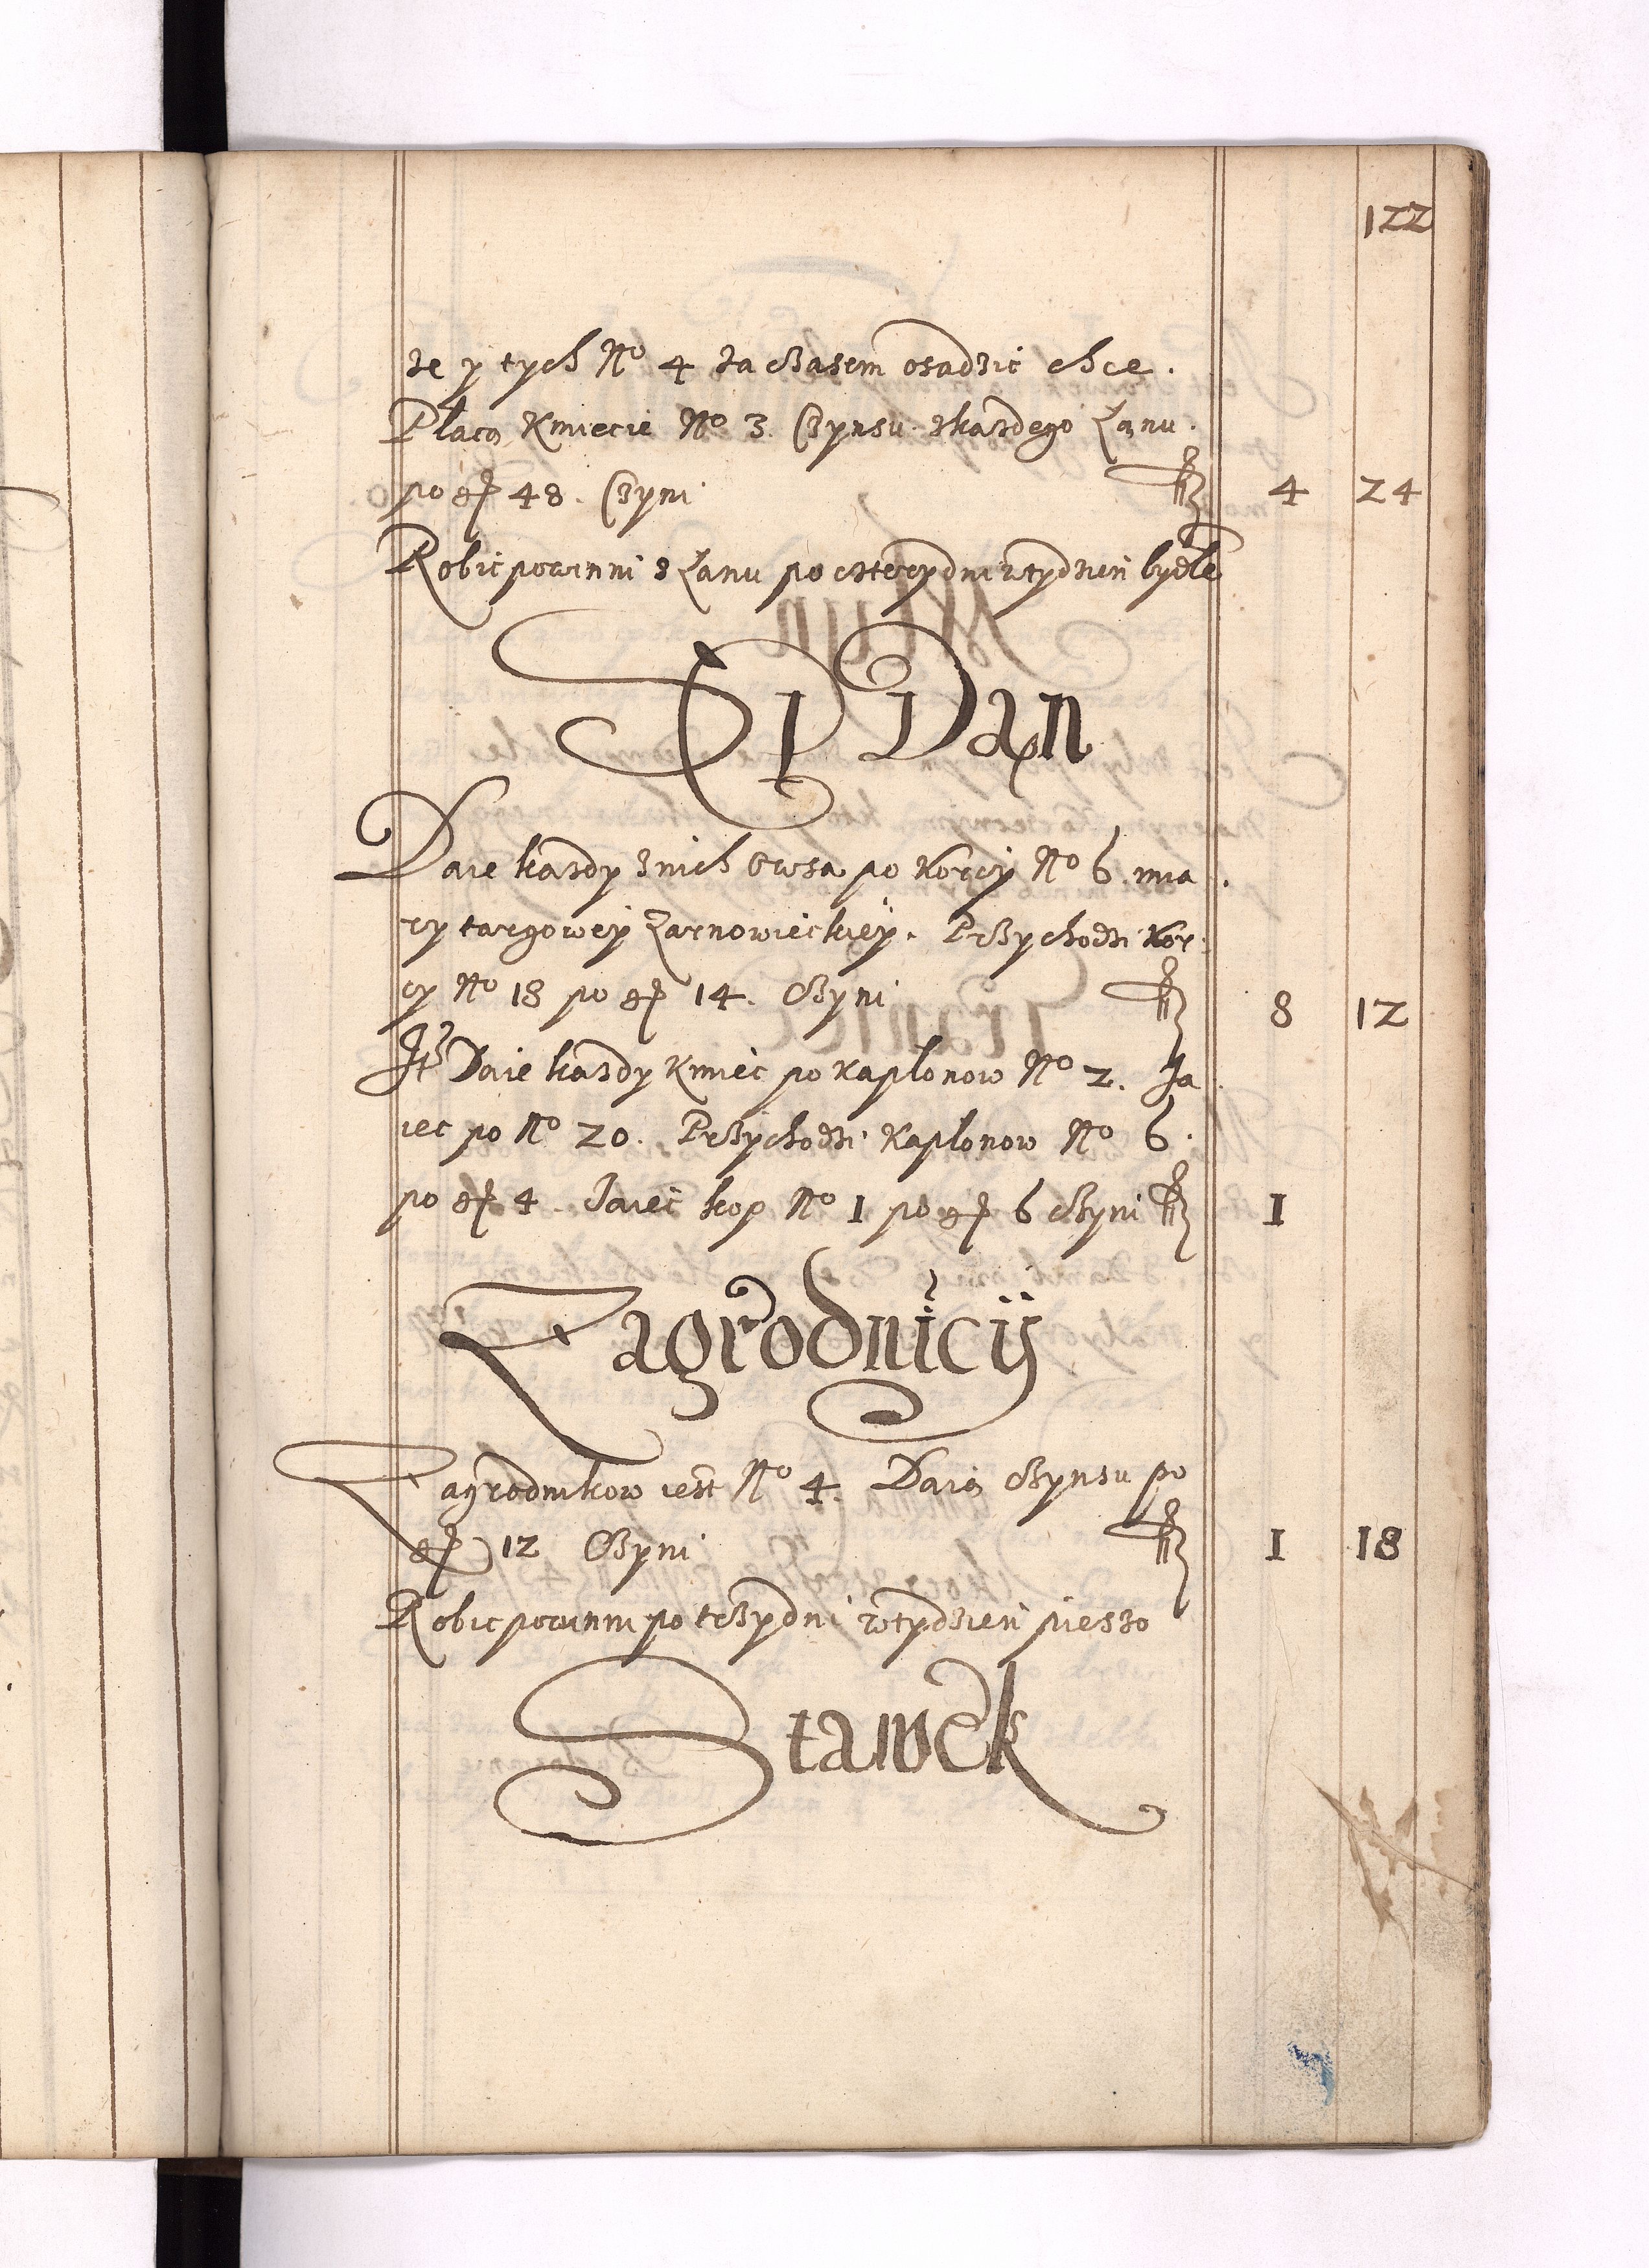 122
że y tych No 4 za czasem osadzić chce.
Płacą Kmiecie No 3. Czynsu zkazdego Łanu.
po gr 48. Czyni fl 4 24
Robić powinni z Łanu po cztery dni w tydzień bydłe
Dan
Daie kazdy znich Owsa po Korcy No 6. mia
ry targowey Zarnowieckiey. Przychodzi Kor
cy No 18 po gr 14. Czyni fl 8 12
It Daie kazdy Kmieć po Kapłonow No 2. Ja
iec po No 20. Przychodzi Kapłonow No 6.
po gr 4. Jaiec kop No 1 po gr 6 Czyni fl 1
Zagrodnicy
Zagrodnikow iest No 4. Daią Czynsu po
gr 12 Czyni fl 1 18
Robić powinni po trzy dni w tydzień pieszo
Stawek